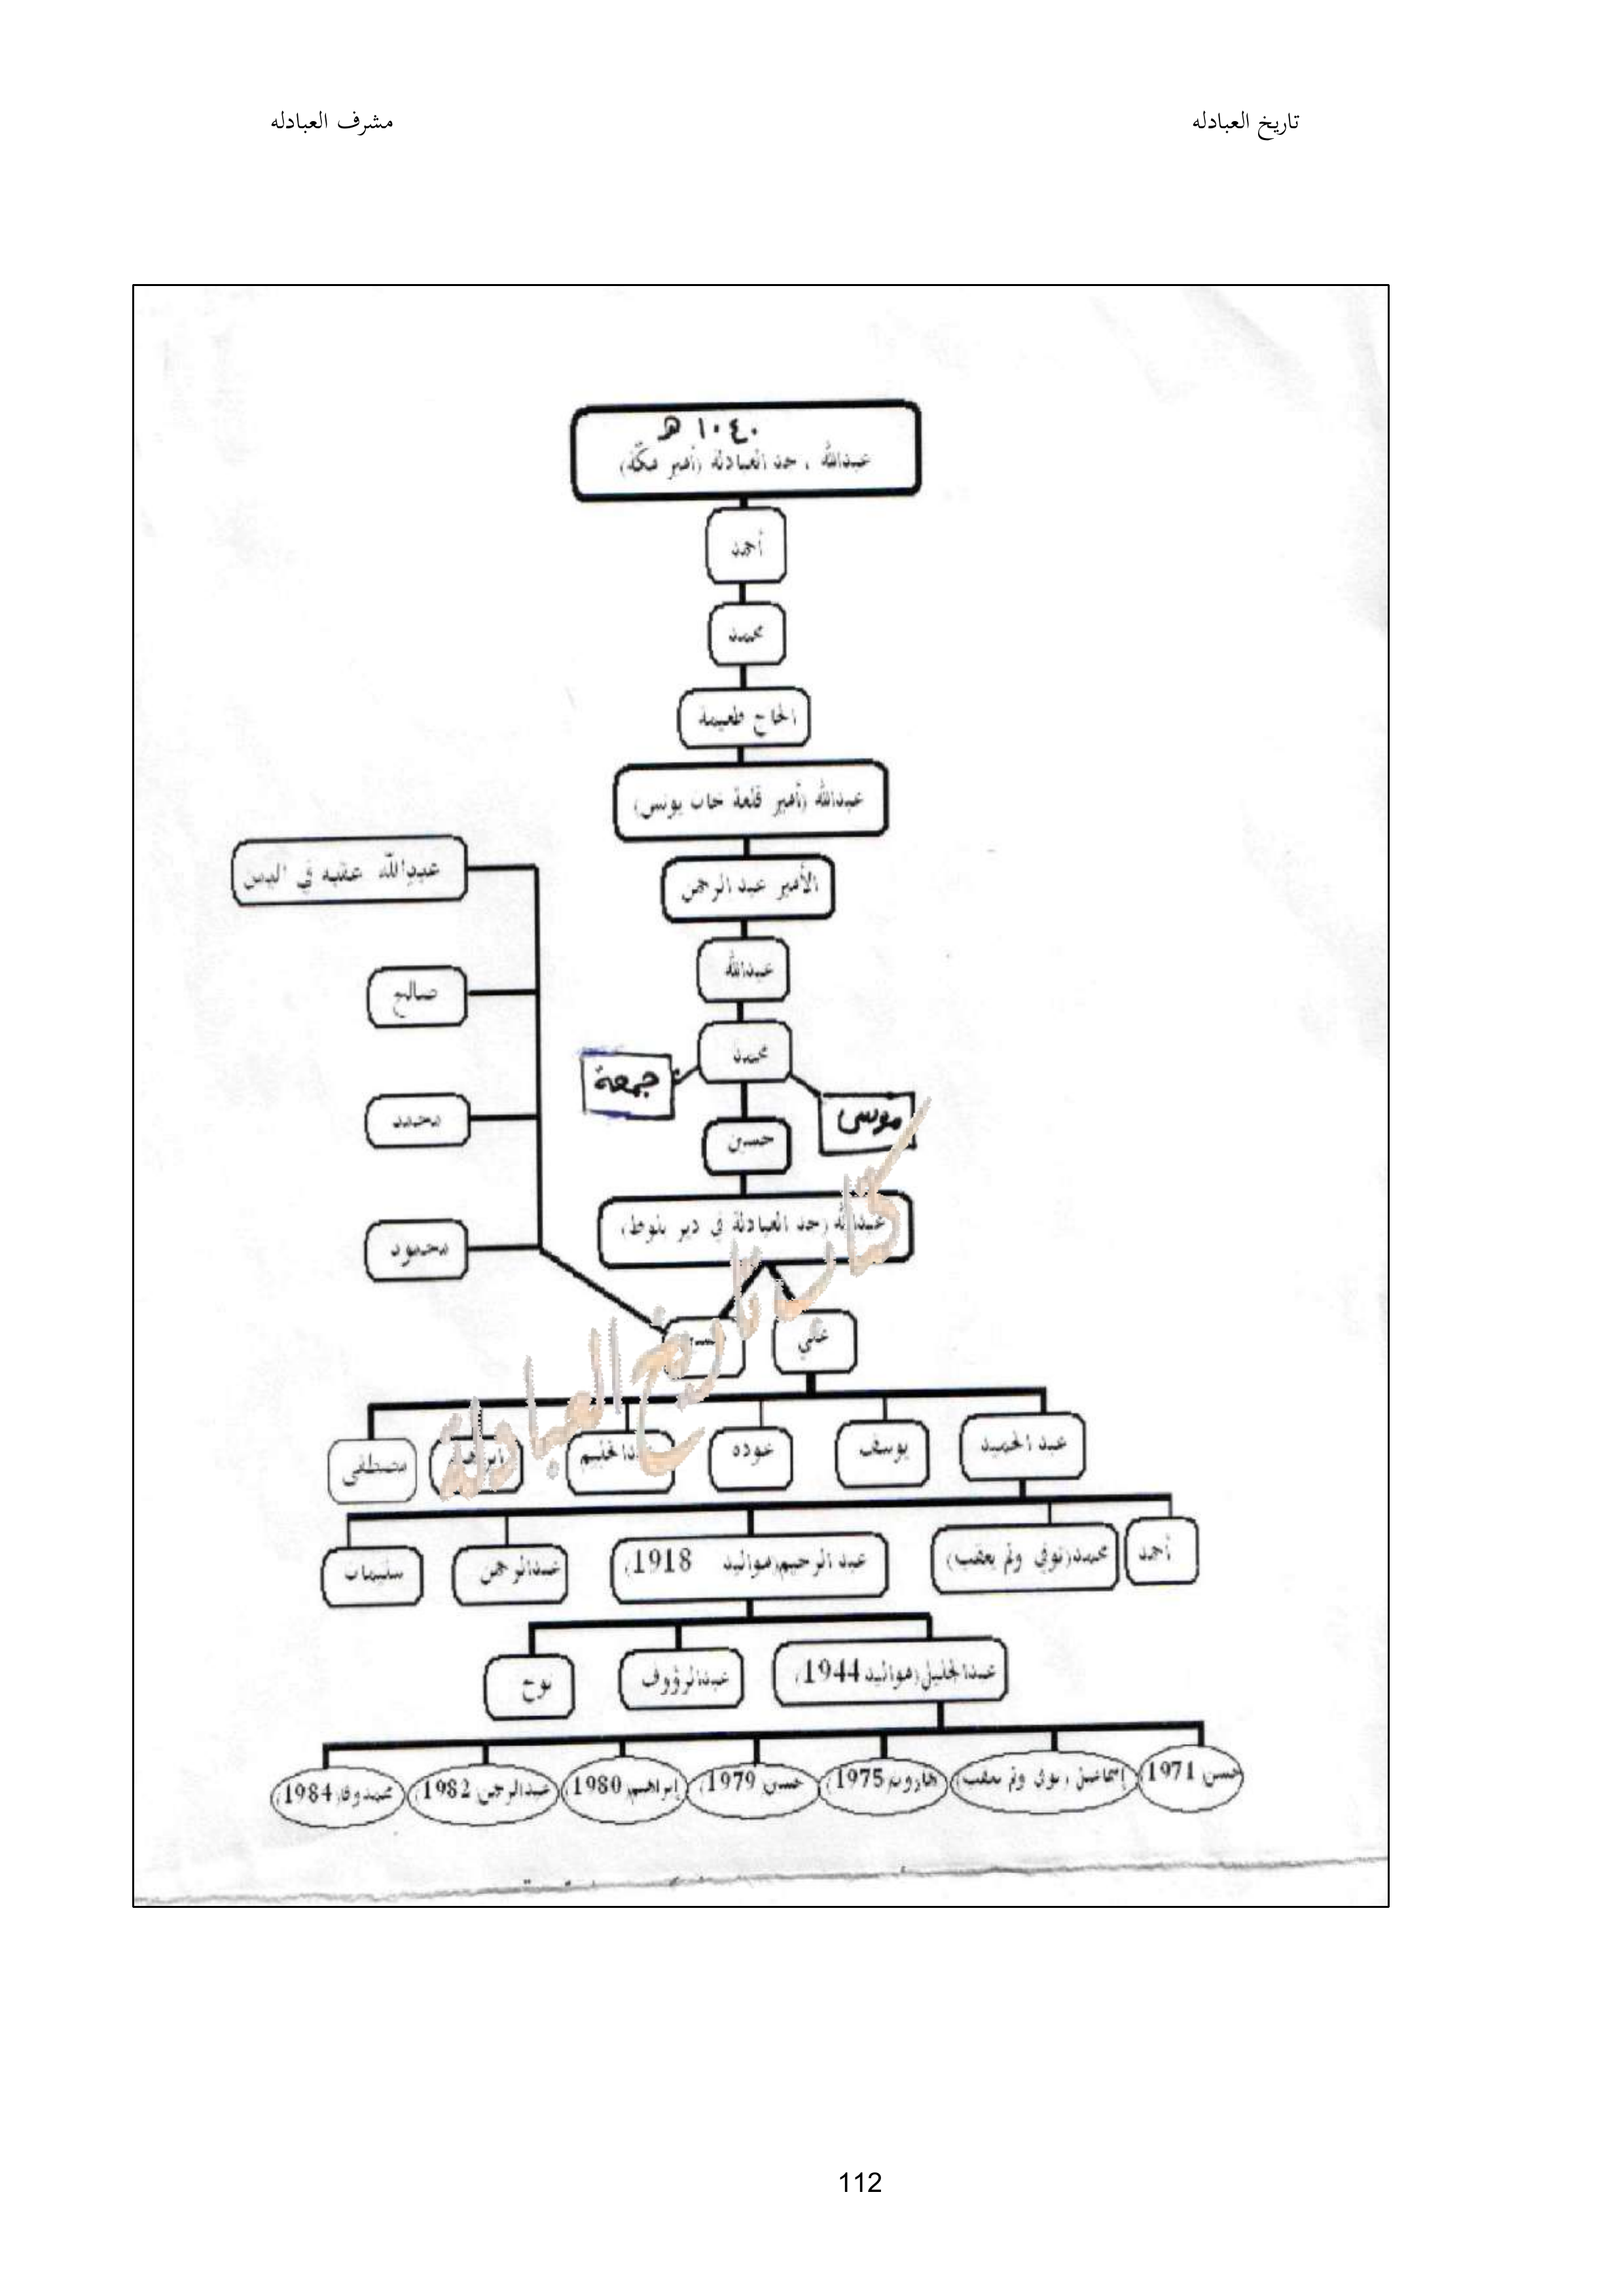 تاريخ العبادله
مشرف العبادله
١٠٤٠ هـ
عبدالله ، جد العبادلة (أمير مكّة)
أحمد
محمد
الحاج طعيمة
عبدالله (أمير قلعة خان يونس)
الأمير عبد الرحمن
عبدالله عقبه في اليمن
عبدالله
صالح
محمد
جمعة
موسى
محمد
حسين
عبدالله (جد العبادلة في دير بلوط)
محمود
علي
كتاب تاريخ العبادلة
عبد الحميد
يوسف
عوده
مصطفى
أحمد
محمد(توفي ولم يعقب)
عبد الرحيم(مواليد 1918)
عبدالرحمن
سليمان
عبدالجليل(مواليد 1944)
عبدالرؤوف
نوح
حسن 1971
إسماعيل (توفي ولم يعقب)
هارون 1975)
حسين 1979)
إبراهيم 1980)
عبدالرحمن 1982)
محمد وفا 1984)
112